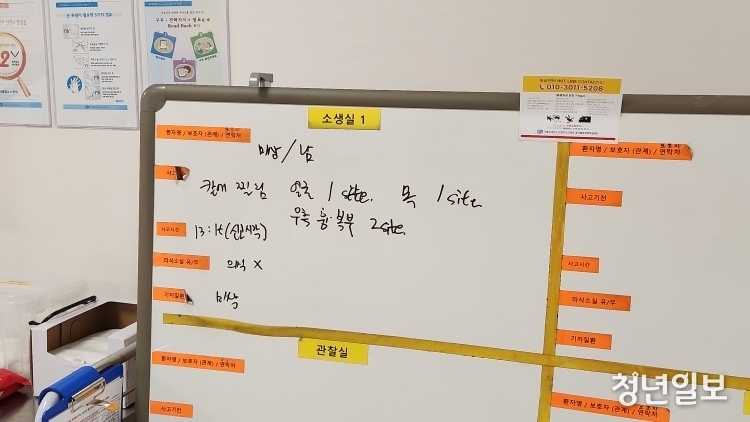 구두·전화지시가 필요할 때
Read Back 하기
HOT-LINE CONTACT
010-3011-5208
소생실 1
환자명 / 보호자 (관계) / 연락처
미상/남
사고
칼에 찔림 얼굴 1 site. 목 1 site
우측 흉·복부 2 site.
사고시간
13:15(신고시각)
의식소실 유/무
의식 X
기저질환
미상
환자명 / 보호자 (관계) / 연락처
사고기전
사고시간
의식소실 유/무
기저질환
관찰실
환자명 / 보호자 (관계) / 연락처
사고기전
환자명 / 보호자 (관계) / 연락처
사고기전
청년일보